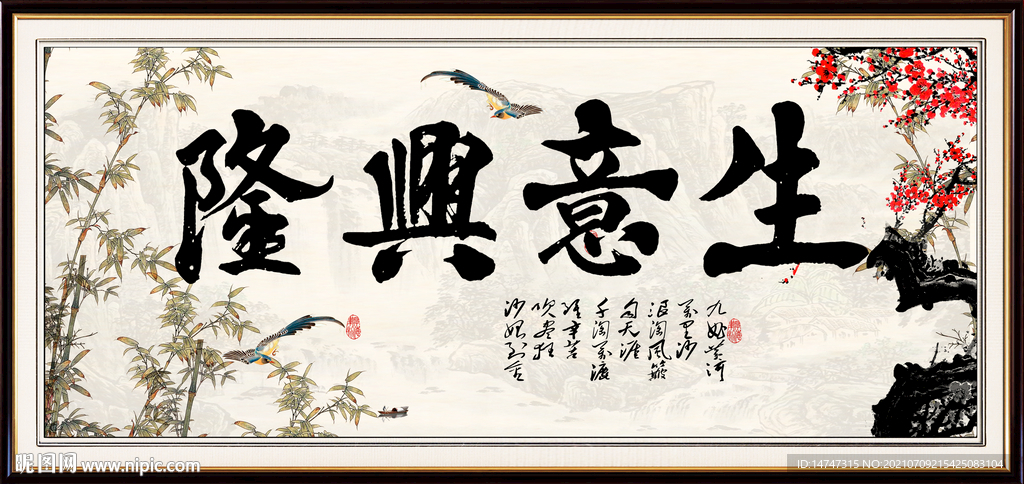 生意興隆
九曲黄河
万里沙
浪淘風簸
自天涯
千淘万漉
雖辛苦
吹尽狂
沙始到金
昵图网 www.nipic.com
ID:14747315 NO:20210709215425083104